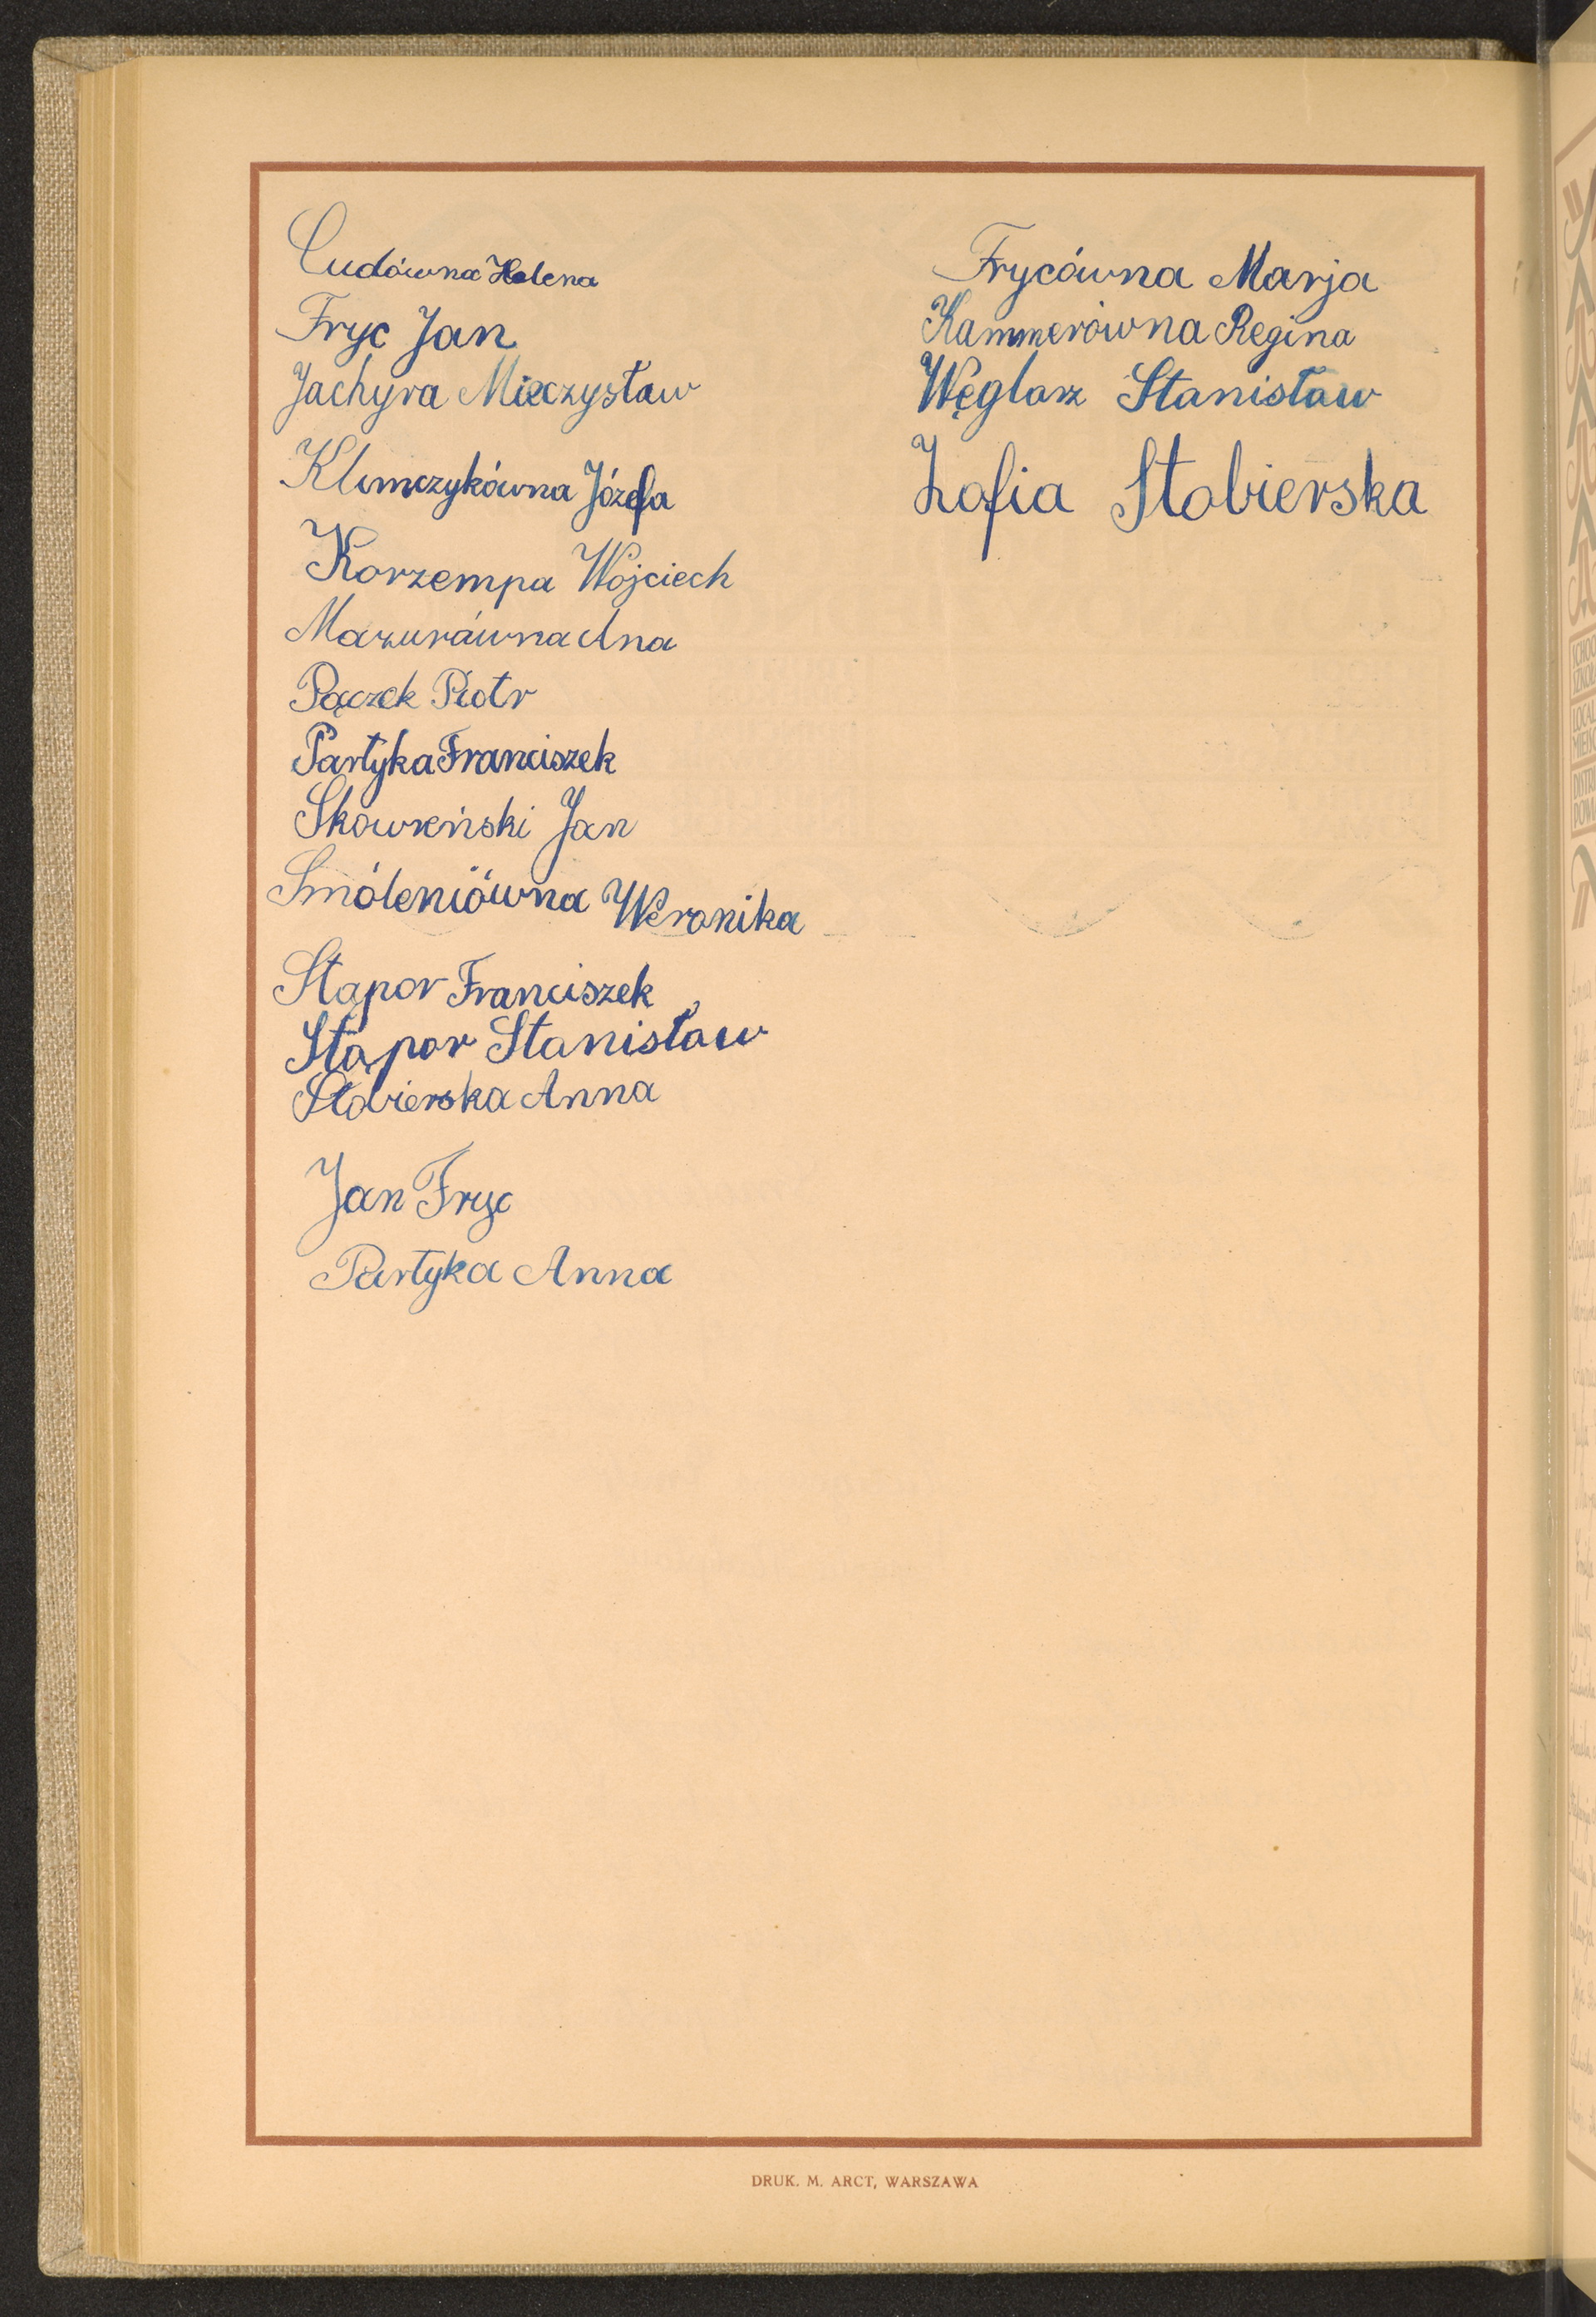 Cudówna Helena
Fryc Jan
Jachyra Mieczysław
Klimczykówna Józefa
Korzempa Wojciech
Mazurówna Ana
Pączek Piotr
Partyka Franciszek
Skowreński Jan
Smóleniówna Weronika
Stąpor Franciszek
Stąpor Stanisław
Stobierska Anna
Jan Fryc
Partyka Anna
Frycówna Marja
Kammerówna Regina
Węglarz Stanisław
Zofia Stobierska
DRUK. M. ARCT, WARSZAWA